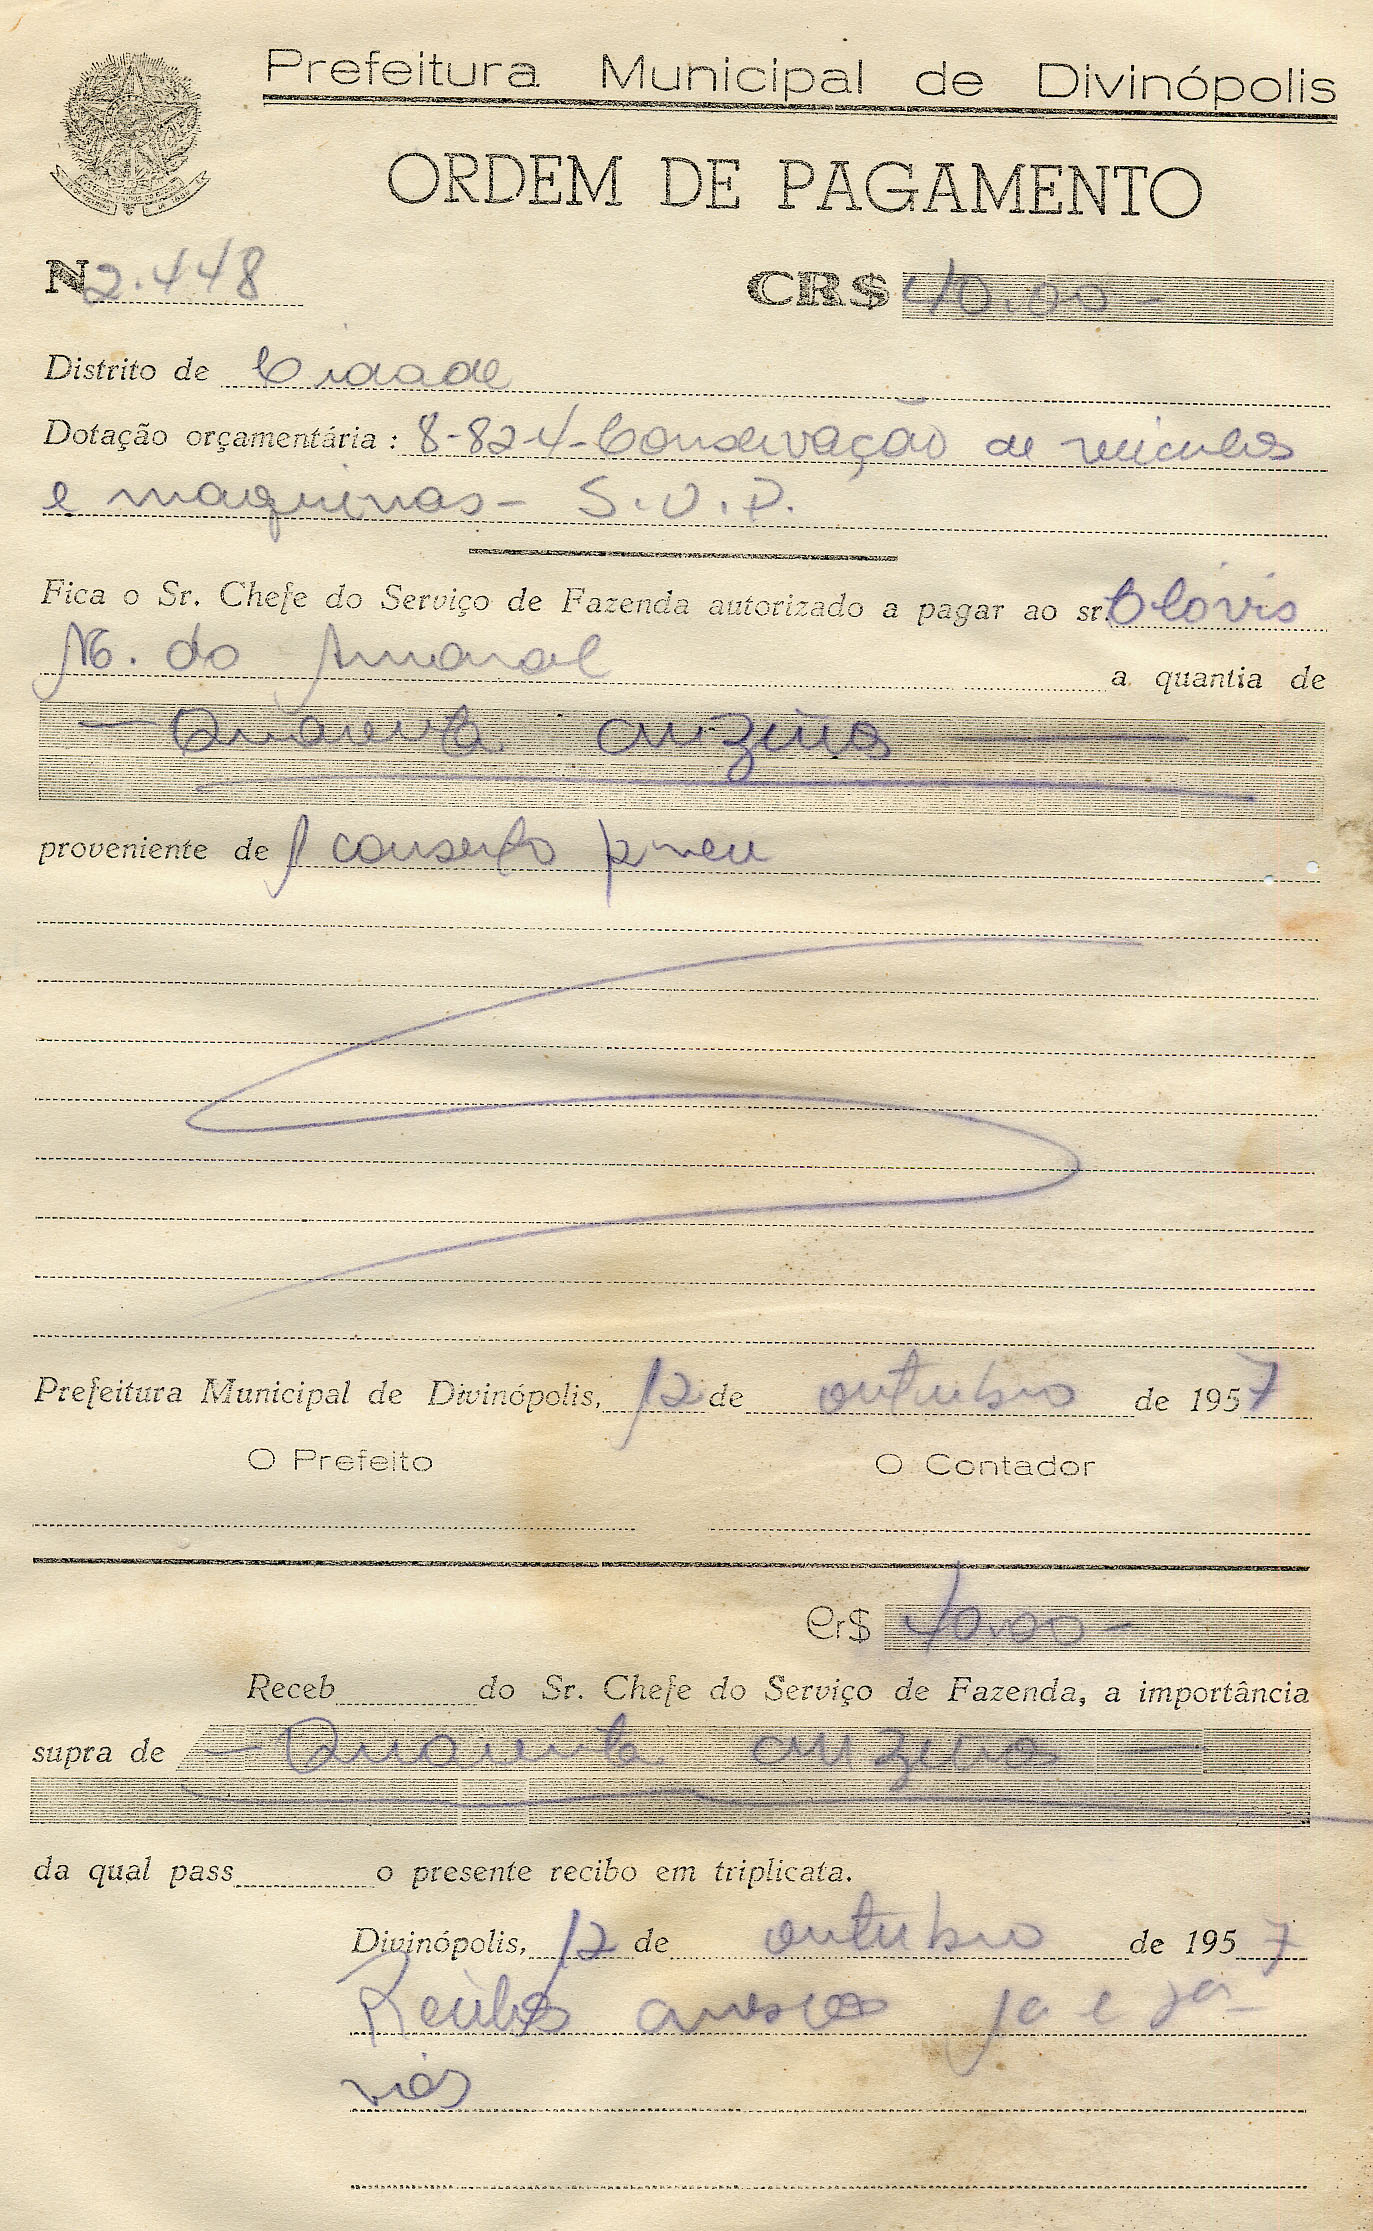 Prefeitura Municipal de Divinópolis
ORDEM DE PAGAMENTO
N 2.448 CR$ 40.00 -
Distrito de Cidade
Dotação orçamentária: 8-82-4-Conservação de veiculos
e maquinas - S.V.P.
Fica o Sr. Chefe do Serviço de Fazenda autorizado a pagar ao sr. Clóvis
M. do Amaral a quantia de
— Quarenta cruzeiros —
proveniente de p/ conserto pneu
Prefeitura Municipal de Divinópolis, 12 de outubro de 1957
O Prefeito O Contador
Cr$ 40.00 -
Receb do Sr. Chefe do Serviço de Fazenda, a importância
supra de — Quarenta cruzeiros —
da qual pass o presente recibo em triplicata.
Divinópolis, 12 de outubro de 1957
Recibos anexos